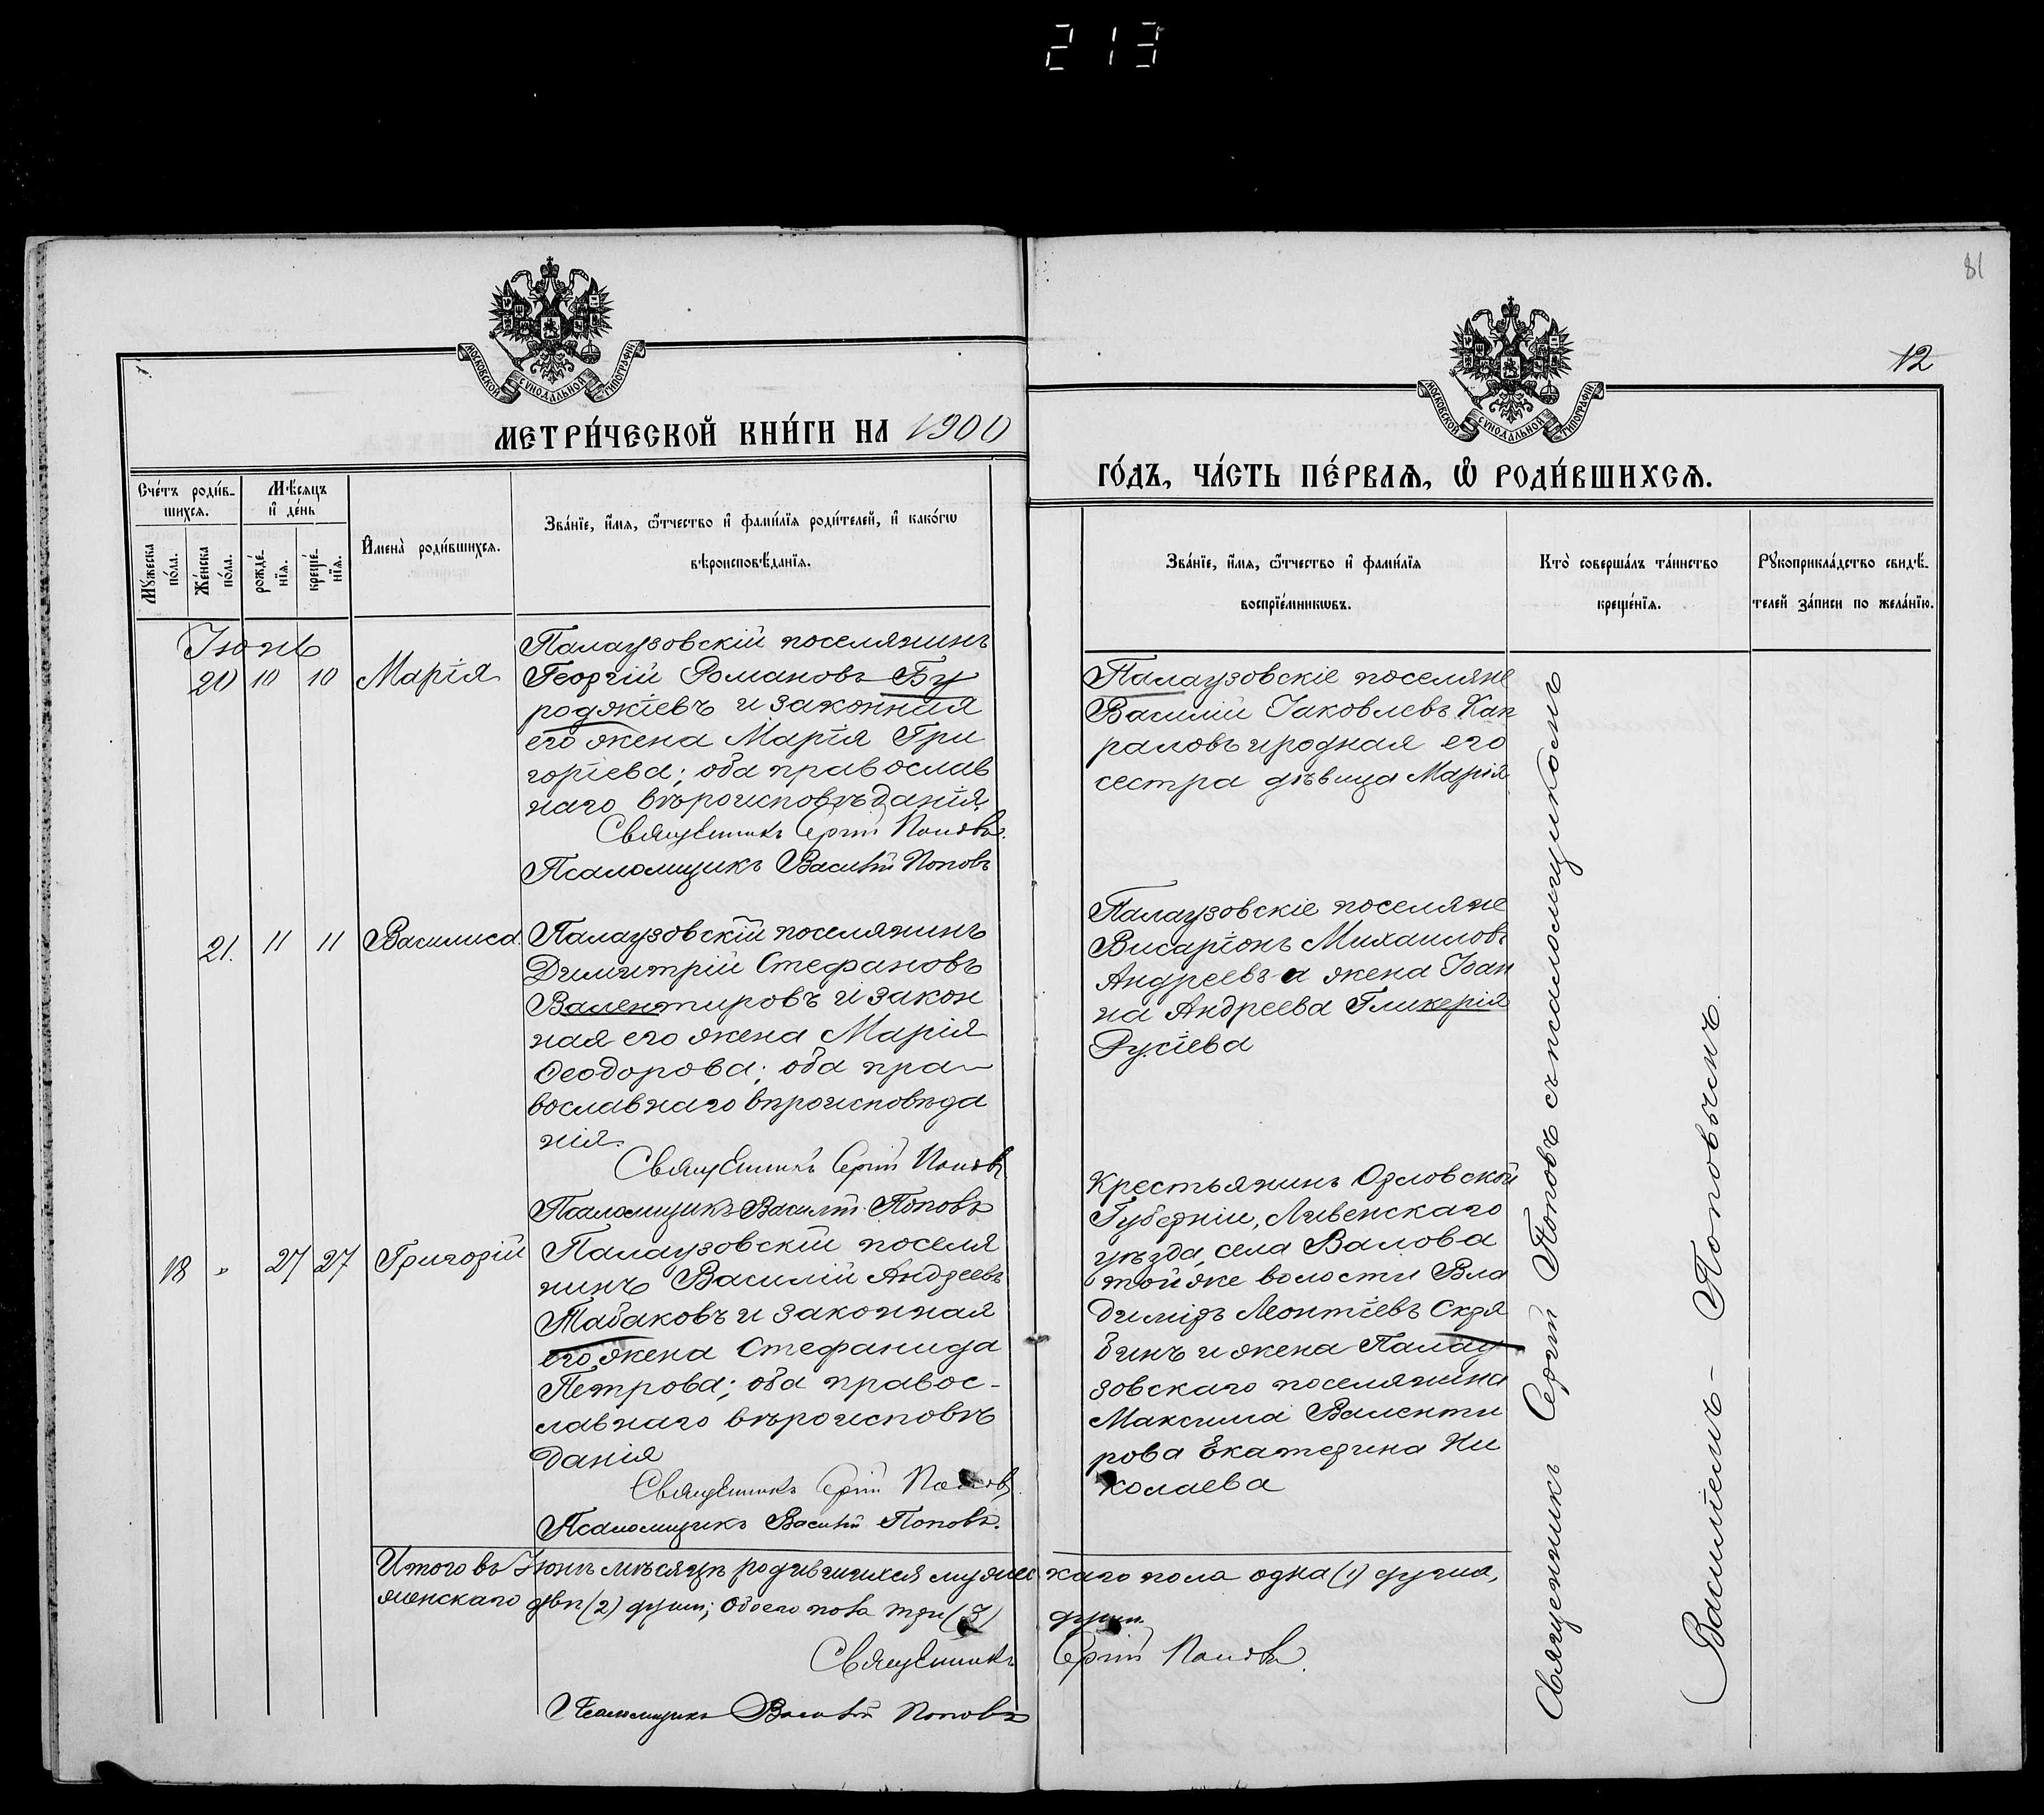 213
81
12
МОСКОВСКОЙ СѴНОДАЛЬНОЙ ТИПОГРАФІИ
МОСКОВСКОЙ СѴНОДАЛЬНОЙ ТИПОГРАФІИ
МЕТРИ́ЧЕСКОЙ КНИ́ГИ НА 1900
ГО́ДЪ, ЧА́СТЬ ПЕ́РВАѦ, Ѽ РОДИ́ВШИХСѦ.
Сче́тъ роди́в-
шихсѧ.
Мѣ́сяцъ
и҆ де́нь
Мꙋ́жеска по́ла.
Же́нска по́ла.
рожде́-нїѧ.
креще́-нїѧ.
И҆мена̀ роди́вшихсѧ.
Зва́нїе, и҆́мѧ, ѻ҆́тчество и҆ фами́лїѧ роди́телей, и҆ како́гѡ
вѣроисповѣ́данїѧ.
Зва́нїе, и҆́мѧ, ѻ҆́тчество и҆ фами́лїѧ
воспрїе́мникѡвъ.
Кто̀ соверша́лъ та́инство
креще́нїѧ.
Рꙋкоприкла́дство свидѣ́-
телей за́писи по жела́нїю.
Іюнь
20 10 10 Марія
Палаузовскій поселянинъ
Георгій Романовъ Бу
роджіевъ и законная
его жена Марія Гри
горіева; оба православ
наго вѣроисповѣданія
Священникъ Сергій Поповъ.
Псаломщикъ Василій Поповъ
Палаузовскіе поселяне
Василій Іаковлевъ Кап
раловъ и родная его
сестра дѣвица Марія
21. 11 11 Василиса
Палаузовскій поселянинъ
Димитрій Стефановъ
Валентировъ и закон
ная его жена Марія
Ѳеодорова; оба пра-
вославнаго вѣроисповѣда
нія.
Священникъ Сергій Поповъ
Псаломщикъ Василій Поповъ
Палаузовскіе поселяне
Висаріонъ Михаиловъ
Андреевъ а жена Іоан
на Андреева Гликерія
Русіева
18 " 27 27 Григорій
Палаузовскій поселя
нинъ Василій Андреевъ
Табаковъ и законная
его жена Стефанида
Петрова; оба правос-
лавнаго вѣроисповѣ
данія
Священникъ Сергій Поповъ.
Псаломщикъ Василій Поповъ.
Крестьянинъ Орловской
Губерніи, Ливенскаго
уѣзда, села Валова
тойже волости Вла
димiръ Леонтіевъ Скря
бинъ и жена Палау
зовскаго поселянина
Максима Валенти
рова Екатерина Ни
колаева
Итого въ Іюнѣ мѣсяцѣ родившихся мужес каго пола одна (1) душа,
женскаго двѣ (2) души; Обоего пола три (3) души.
Священникъ Сергій Поповъ.
Псаломщикъ Василій Поповъ
Священникъ Сергій Поповъ съ псаломщикомъ
Василіемъ - Поповымъ.